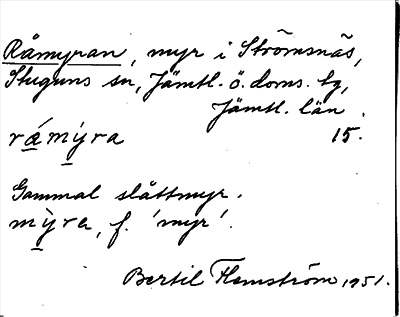 Råmyran, myr i Strömsnäs,
Stuguns sn, Jämtl. ö. doms. tg,
Jämtl. län.
rǻmýra 15.
Gammal slåttmyr.
mỳra, f. 'myr'.
Bertil Flemström 1951.